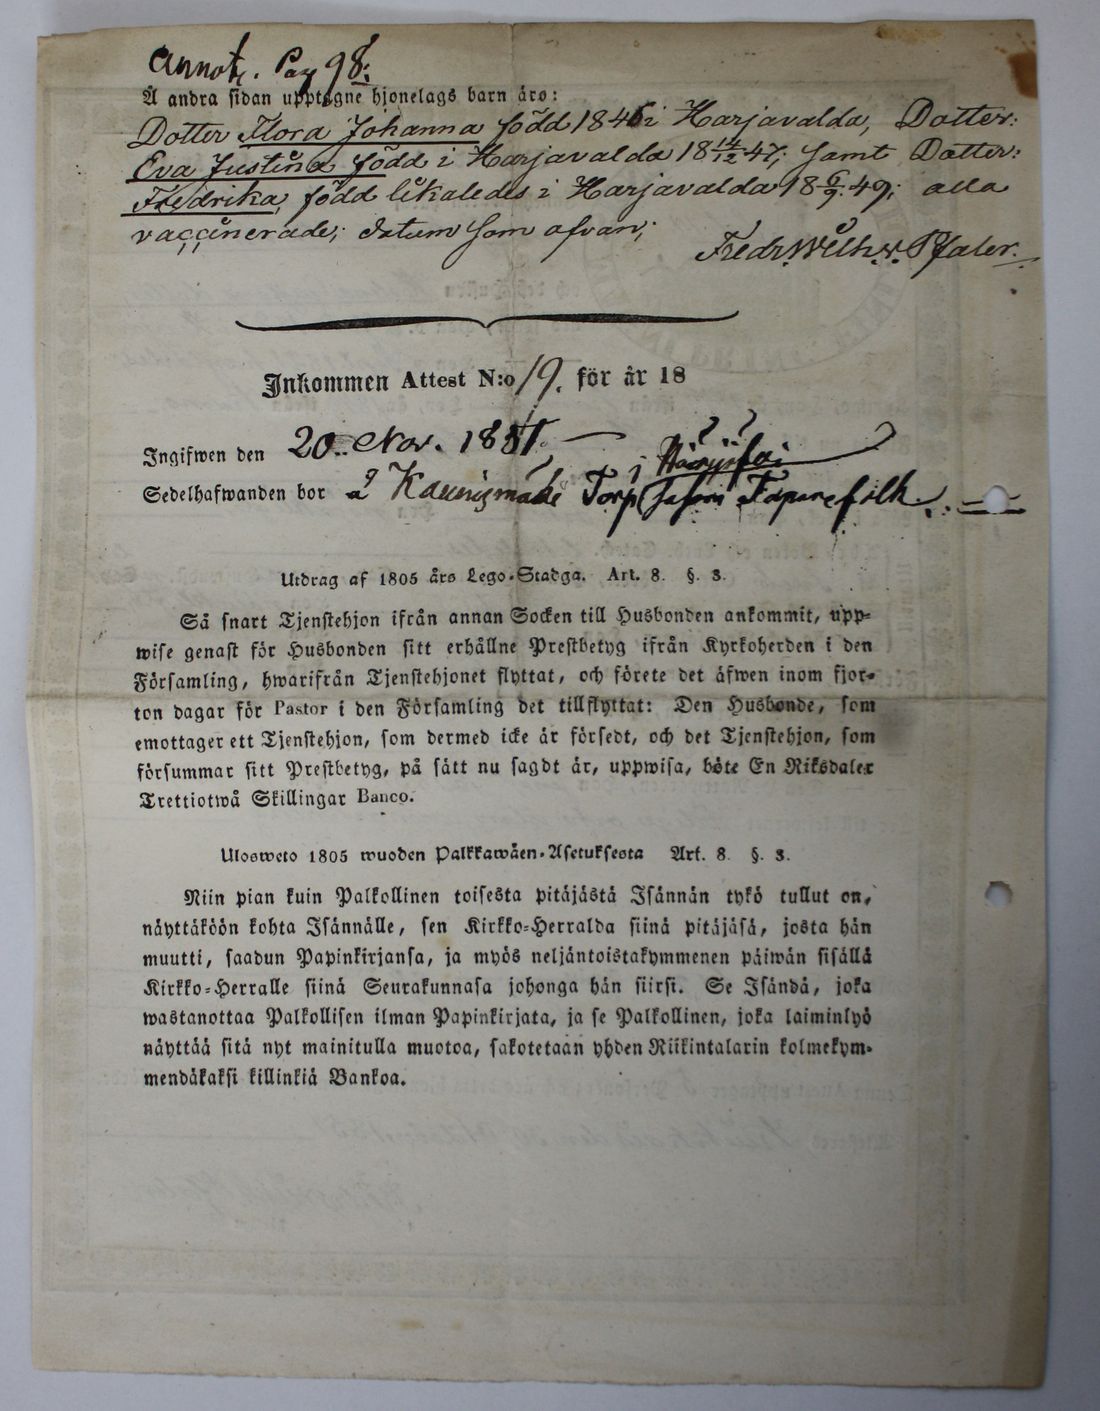 Annot. Pag 98:
Å andra sidan upptagne hjonelags barn äro:
Dotter Flora Johanna född 1845 i Harjavalda, Dotter:
Eva Justina född i Harjavalda 18 14/12 47; samt Dotter:
Fredrika, född likaledes i Harjavalda 18 6/9 49; alla
vaccinerade; datum som ofvan;
Fredr. Wilh. v. Pfaler.
Inkommen Attest N:o 19. för år 18
Ingifwen den 20 Nov. 1851.
Sedelhafwanden bor å Kaunismäki Torp såsom
Utdrag af 1805 års Lego-Stadga. Art. 8. §. 3.
Så snart Tjenstehjon ifrån annan Socken till Husbonden ankommit, upp-
wise genast för Husbonden sitt erhållne Prestbetyg ifrån Kyrkoherden i den
Församling, hwarifrån Tjenstehjonet flyttat, och förete det äfwen inom fjor-
ton dagar för Pastor i den Församling det tillflyttat: Den Husbonde, som
emottager ett Tjenstehjon, som dermed icke är försedt, och det Tjenstehjon, som
försummar sitt Prestbetyg, på sätt nu sagdt är, uppwisa, böte En Riksdaler
Trettiotwå Skillingar Banco.
Ulosweto 1805 wuoden Palkkawäen-Asetuksesta Art. 8. §. 3.
Niin pian kuin Palkollinen toisesta pitäjästä Isännän tykö tullut on,
näyttäköön kohta Isännälle, sen Kirkko-Herralda siinä pitäjäsä, josta hän
muutti, saadun Papinkirjansa, ja myös neljäntoistakymmenen päiwän sisällä
Kirkko-Herralle siinä Seurakunnasa johonga hän siirsi. Se Isändä, joka
wastanottaa Palkollisen ilman Papinkirjata, ja se Palkollinen, joka laiminlyö
näyttää sitä nyt mainitulla muotoa, sakotetaan yhden Riikintalarin kolmekym-
mendäkaksi killinkiä Bankoa.